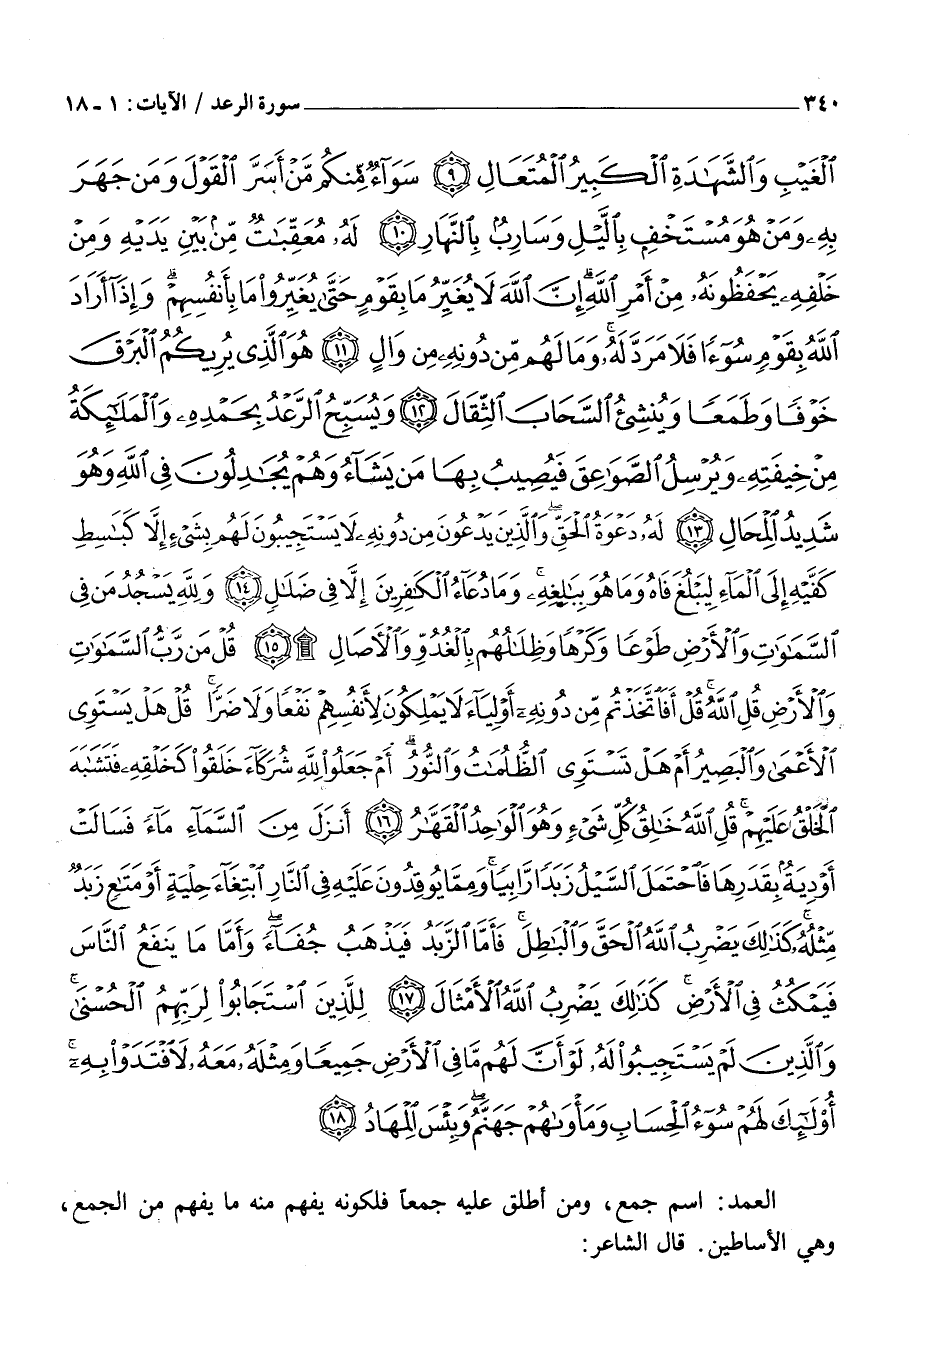 ٣٤٠ ــــــــــ سورة الرعد / الآيات: ١ ـ ١٨
ٱلْغَيْبِ وَٱلشَّهَٰدَةِ ٱلْكَبِيرُ ٱلْمُتَعَالِ ۝٩ سَوَآءٌ مِّنكُم مَّنْ أَسَرَّ ٱلْقَوْلَ وَمَن جَهَرَ
بِهِۦ وَمَنْ هُوَ مُسْتَخْفٍۭ بِٱلَّيْلِ وَسَارِبٌۢ بِٱلنَّهَارِ ۝١٠ لَهُۥ مُعَقِّبَٰتٌ مِّنۢ بَيْنِ يَدَيْهِ وَمِنْ
خَلْفِهِۦ يَحْفَظُونَهُۥ مِنْ أَمْرِ ٱللَّهِ ۗ إِنَّ ٱللَّهَ لَا يُغَيِّرُ مَا بِقَوْمٍ حَتَّىٰ يُغَيِّرُوا۟ مَا بِأَنفُسِهِمْ ۗ وَإِذَآ أَرَادَ
ٱللَّهُ بِقَوْمٍ سُوٓءًا فَلَا مَرَدَّ لَهُۥ ۚ وَمَا لَهُم مِّن دُونِهِۦ مِن وَالٍ ۝١١ هُوَ ٱلَّذِى يُرِيكُمُ ٱلْبَرْقَ
خَوْفًا وَطَمَعًا وَيُنشِئُ ٱلسَّحَابَ ٱلثِّقَالَ ۝١٢ وَيُسَبِّحُ ٱلرَّعْدُ بِحَمْدِهِۦ وَٱلْمَلَٰٓئِكَةُ
مِنْ خِيفَتِهِۦ وَيُرْسِلُ ٱلصَّوَٰعِقَ فَيُصِيبُ بِهَا مَن يَشَآءُ وَهُمْ يُجَٰدِلُونَ فِى ٱللَّهِ وَهُوَ
شَدِيدُ ٱلْمِحَالِ ۝١٣ لَهُۥ دَعْوَةُ ٱلْحَقِّ ۖ وَٱلَّذِينَ يَدْعُونَ مِن دُونِهِۦ لَا يَسْتَجِيبُونَ لَهُم بِشَىْءٍ إِلَّا كَبَٰسِطِ
كَفَّيْهِ إِلَى ٱلْمَآءِ لِيَبْلُغَ فَاهُ وَمَا هُوَ بِبَٰلِغِهِۦ ۚ وَمَا دُعَآءُ ٱلْكَٰفِرِينَ إِلَّا فِى ضَلَٰلٍ ۝١٤ وَلِلَّهِ يَسْجُدُ مَن فِى
ٱلسَّمَٰوَٰتِ وَٱلْأَرْضِ طَوْعًا وَكَرْهًا وَظِلَٰلُهُم بِٱلْغُدُوِّ وَٱلْءَاصَالِ ۩ ۝١٥ قُلْ مَن رَّبُّ ٱلسَّمَٰوَٰتِ
وَٱلْأَرْضِ قُلِ ٱللَّهُ ۚ قُلْ أَفَٱتَّخَذْتُم مِّن دُونِهِۦٓ أَوْلِيَآءَ لَا يَمْلِكُونَ لِأَنفُسِهِمْ نَفْعًا وَلَا ضَرًّا ۚ قُلْ هَلْ يَسْتَوِى
ٱلْأَعْمَىٰ وَٱلْبَصِيرُ أَمْ هَلْ تَسْتَوِى ٱلظُّلُمَٰتُ وَٱلنُّورُ ۗ أَمْ جَعَلُوا۟ لِلَّهِ شُرَكَآءَ خَلَقُوا۟ كَخَلْقِهِۦ فَتَشَٰبَهَ
ٱلْخَلْقُ عَلَيْهِمْ ۚ قُلِ ٱللَّهُ خَٰلِقُ كُلِّ شَىْءٍ وَهُوَ ٱلْوَٰحِدُ ٱلْقَهَّٰرُ ۝١٦ أَنزَلَ مِنَ ٱلسَّمَآءِ مَآءً فَسَالَتْ
أَوْدِيَةٌۢ بِقَدَرِهَا فَٱحْتَمَلَ ٱلسَّيْلُ زَبَدًا رَّابِيًا ۚ وَمِمَّا يُوقِدُونَ عَلَيْهِ فِى ٱلنَّارِ ٱبْتِغَآءَ حِلْيَةٍ أَوْ مَتَٰعٍ زَبَدٌ
مِّثْلُهُۥ ۚ كَذَٰلِكَ يَضْرِبُ ٱللَّهُ ٱلْحَقَّ وَٱلْبَٰطِلَ ۚ فَأَمَّا ٱلزَّبَدُ فَيَذْهَبُ جُفَآءً ۖ وَأَمَّا مَا يَنفَعُ ٱلنَّاسَ
فَيَمْكُثُ فِى ٱلْأَرْضِ ۚ كَذَٰلِكَ يَضْرِبُ ٱللَّهُ ٱلْأَمْثَالَ ۝١٧ لِلَّذِينَ ٱسْتَجَابُوا۟ لِرَبِّهِمُ ٱلْحُسْنَىٰ ۚ
وَٱلَّذِينَ لَمْ يَسْتَجِيبُوا۟ لَهُۥ لَوْ أَنَّ لَهُم مَّا فِى ٱلْأَرْضِ جَمِيعًا وَمِثْلَهُۥ مَعَهُۥ لَٱفْتَدَوْا۟ بِهِۦٓ ۚ
أُو۟لَٰٓئِكَ لَهُمْ سُوٓءُ ٱلْحِسَابِ وَمَأْوَىٰهُمْ جَهَنَّمُ ۖ وَبِئْسَ ٱلْمِهَادُ ۝١٨
العمد: اسم جمع، ومن أطلق عليه جمعاً فلكونه يفهم منه ما يفهم من الجمع،
وهي الأساطين. قال الشاعر: